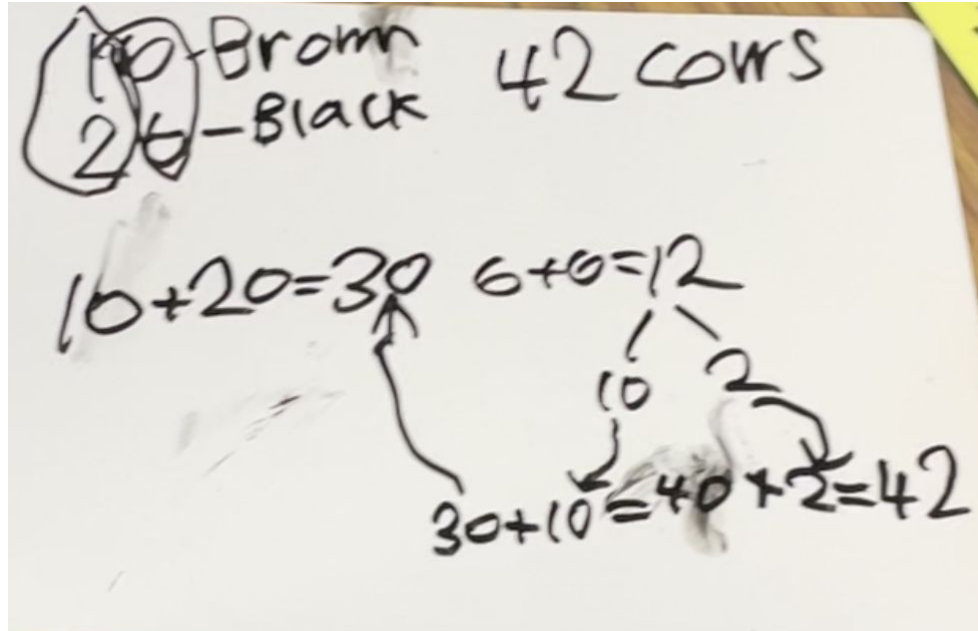 16-Brown 42 cows
26-Black
10+20=30 6+6=12
10 2
30+10=40+2=42